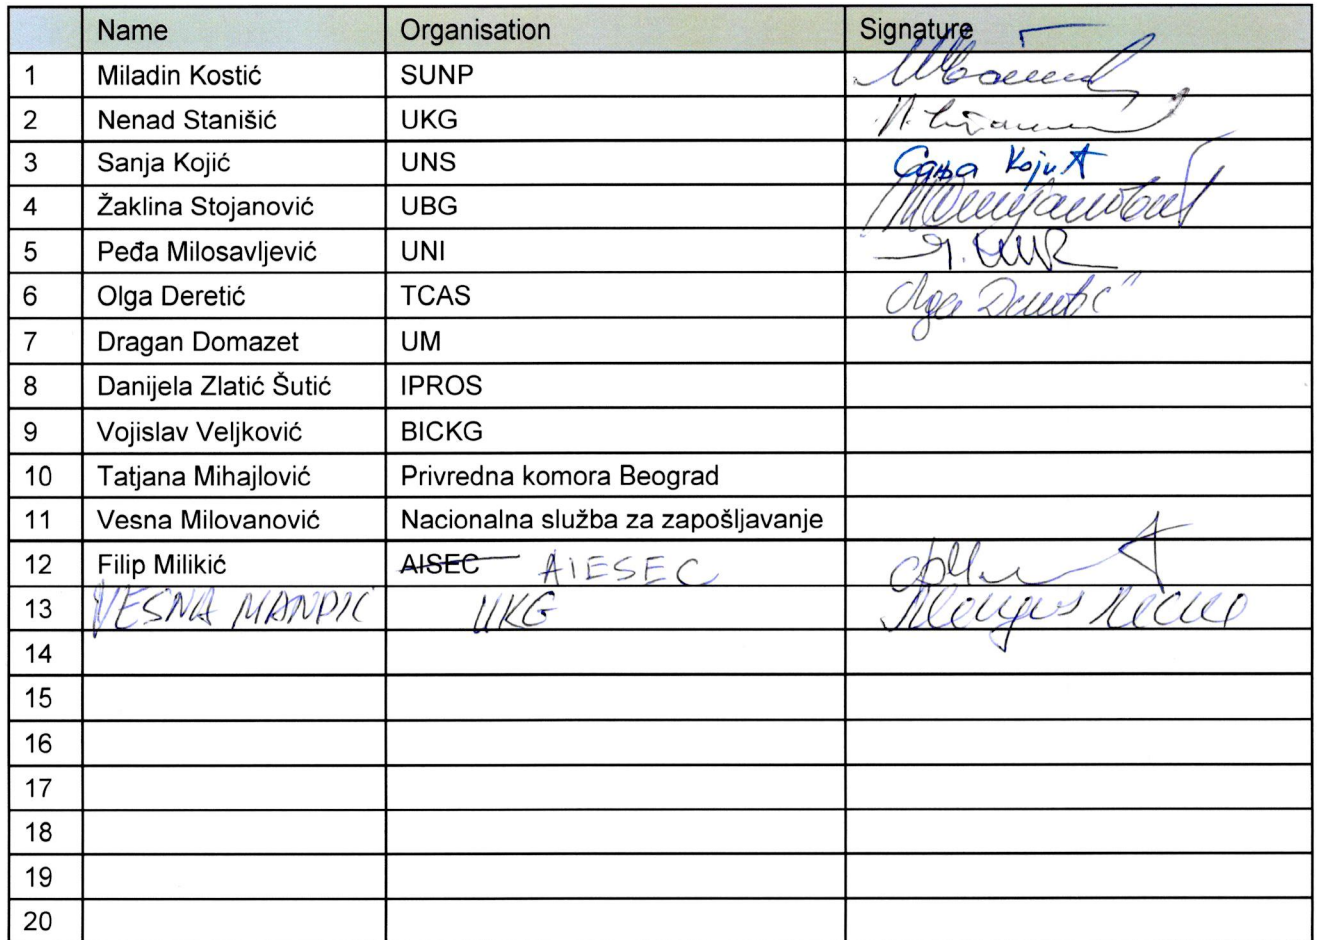 Name Organisation Signature
1 Miladin Kostić SUNP
2 Nenad Stanišić UKG
3 Sanja Kojić UNS Сања Којић
4 Žaklina Stojanović UBG
5 Peđa Milosavljević UNI
6 Olga Deretić TCAS Olga Deretić
7 Dragan Domazet UM
8 Danijela Zlatić Šutić IPROS
9 Vojislav Veljković BICKG
10 Tatjana Mihajlović Privredna komora Beograd
11 Vesna Milovanović Nacionalna služba za zapošljavanje
12 Filip Milikić AISEC AIESEC
13 VESNA MANDIĆ UKG
14
15
16
17
18
19
20